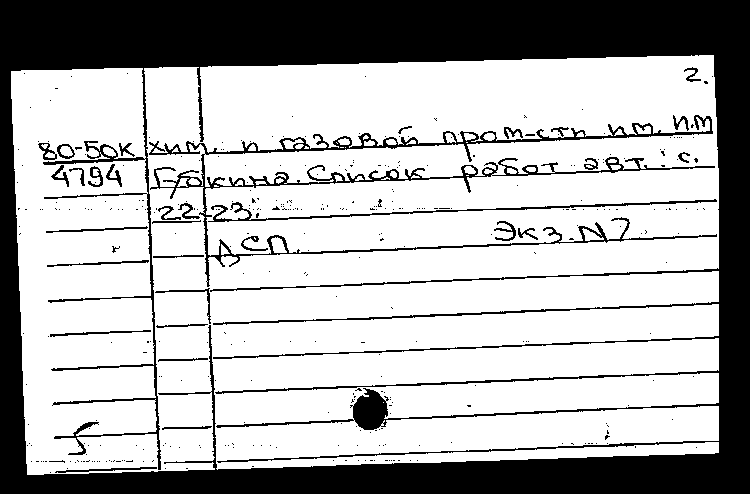 2.
80-50к хим. и газовой пром-сти им. И.М
4794 Губкина. Список работ авт.: с.
22-23.
ДСП. Экз. N 7
5